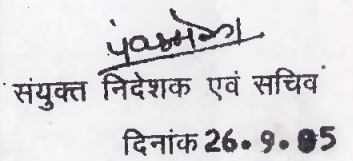 संयुक्त निदेशक एवं सचिव
दिनांक 26.9.05